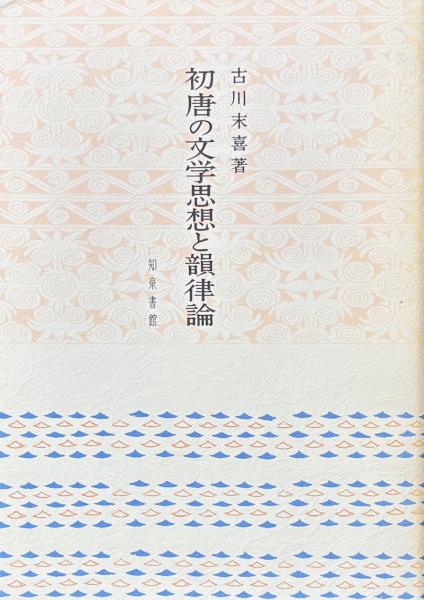 古川末喜著
初唐の文学思想と韻律論
知泉書館